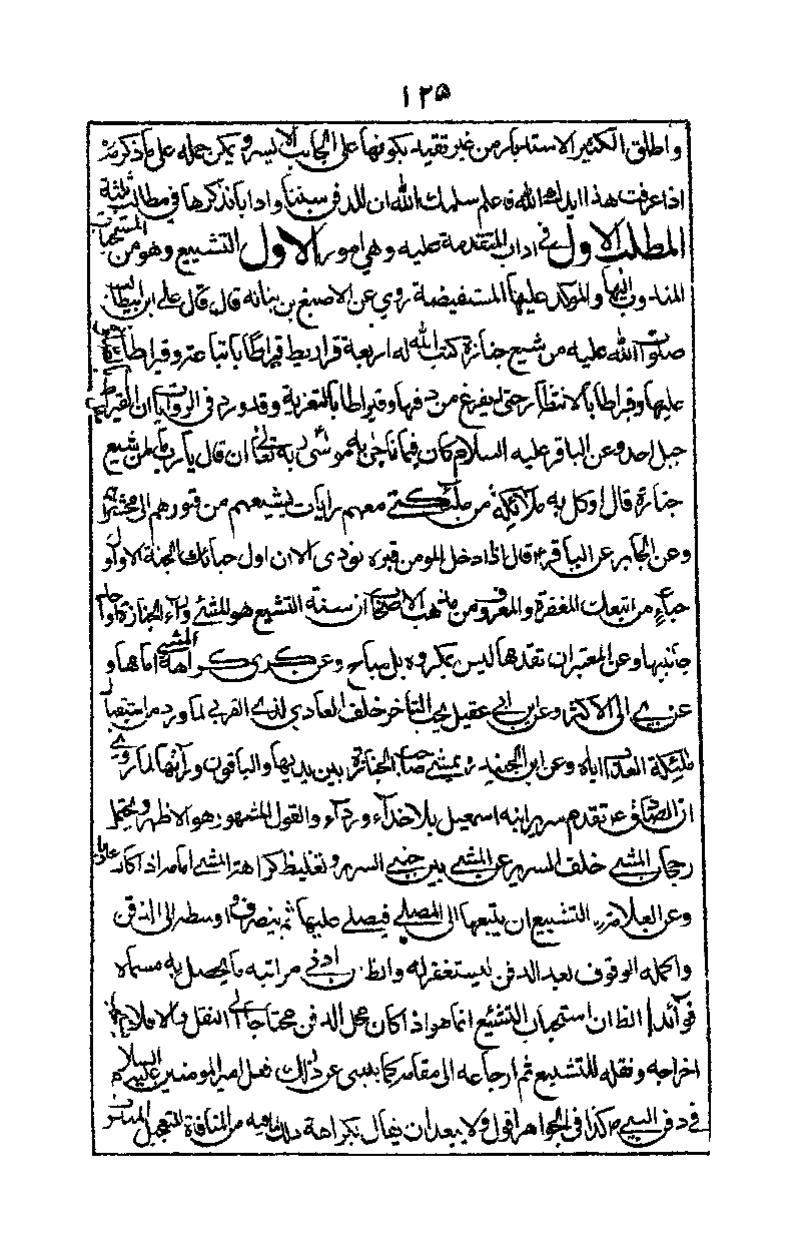 ١٢٥
واطلق الكثير الاستدبار من غير تقييد بكونها على الجانب الايسر ويمكن حمله على ما ذكر ثم
اذا عرفت هذا ايدك الله فاعلم سلمك الله ان للدفن سننا وادابا نذكرها في مطالب ثلثة
المطلب الاول في اداب المتقدمة عليه وهي امور الاول التشييع وهو من المستحبات
المندوب اليها والموكد عليها المستفيضة روي عن الاصبغ بن بنانه قال قال علي ابن ابيطالب
صلوت الله عليه من شيع جنازة كتب الله له اربعة قراريط قيراطا باتباعه وقيراطا
عليها وقيراطا بالانتظار حتى يفرغ من دفنها وقيراطا بالتعزية وقد ورد في الروايات ان القيراط
جبل احد وعن الباقر عليه السلام كان فيما ناجى به موسى ربه تعالى ان قال يا رب ما لمن شيع
جنازة قال اوكل به ملائكة من ملائكتي معهم رايات يشيعهم من قبورهم الى محشرهم
وعن الجابر عن الباقر ع قال اذا دخل المومن قبره نودي الا ان اول حبائك الجنة الا واول
حباء من اتبعك المغفرة والمعروف من مذهب الاصحاب ان سنة التشييع هو المشي وراء الجنازة او احد
جانبيها وعن المعتبر ان تقدمها ليس بمكروه بل مباح وعن كرى كراهة المشي امامها و
عن الى الاكثر وعن ابن ابي عقيل يجب التاخر خلف المعادي لذي القربى لما ورد من استقبال
ملئكة العذاب اياه وعن ابن الجنيد يمشي صاحب الجنازة بين يديها والباقون ورائها لما روي
ان الصادق ع تقدم سرير ابنه اسمعيل بلا حذاء ورداء والقول المشهور هو الاظهر ويحتمل
رجحان المشي خلف السرير عن المشي بين جنبي السرير وتغليظ كراهة المشي امامه اذا كان
وعن العلامة التشييع ان يتبعها الى المصلى فيصلي عليها ثم ينصرف واوسطه الى الدفن
واكمله الوقوف بعد الدفن ليستغفر له والظ ان ادنى مراتبه ما يحصل به مسماه
فوائد ا الظ ان استحباب التشييع انما هو اذا كان محل الدفن محتاجا الى النقل والا فلا
اخراجه ونقله للتشييع ثم ارجاعه الى مقامه كما ينبئ عن ذلك فعل امير المومنين عليه السلام
في دفن النبي ص كذا في الجواهر اقول ولا يبعد ان يقال بكراهة ذلك لما فيه من المنافاة للتعجيل